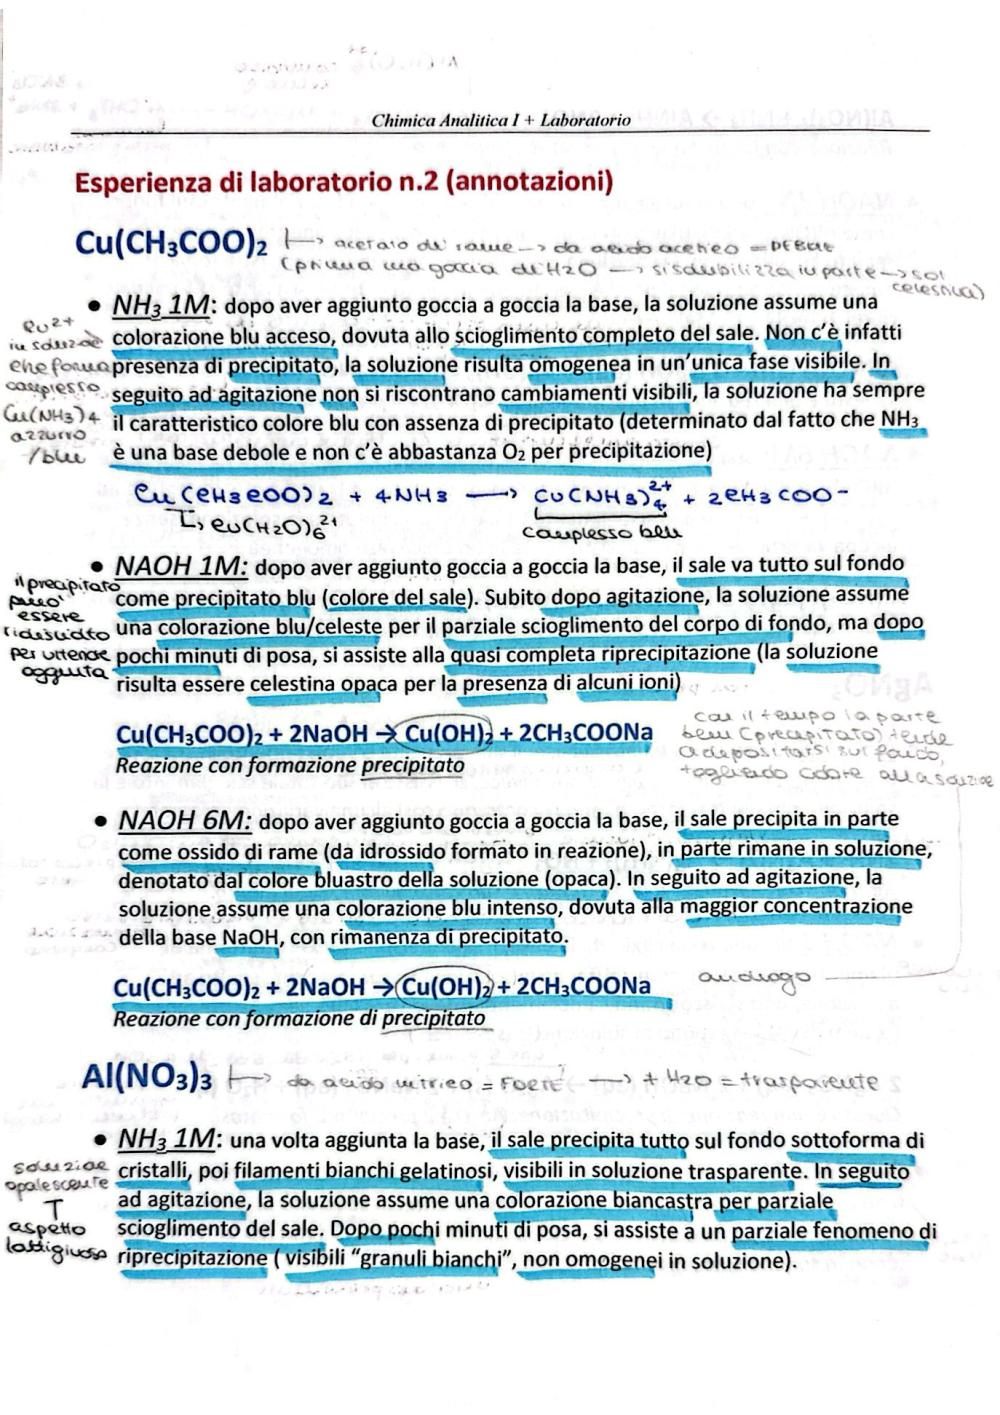 Chimica Analitica I + Laboratorio
Esperienza di laboratorio n.2 (annotazioni)
Cu(CH₃COO)₂ ↦ acetato di rame → da acido acetico = DEBOLE
(prima una goccia di H2O → si solubilizza in parte → sol celestina)
• NH₃ 1M: dopo aver aggiunto goccia a goccia la base, la soluzione assume una
colorazione blu acceso, dovuta allo scioglimento completo del sale. Non c'è infatti
presenza di precipitato, la soluzione risulta omogenea in un'unica fase visibile. In
seguito ad agitazione non si riscontrano cambiamenti visibili, la soluzione ha sempre
il caratteristico colore blu con assenza di precipitato (determinato dal fatto che NH₃
è una base debole e non c'è abbastanza O₂ per precipitazione)
Cu2+
in soluzione
che forma
complesso
Cu(NH3)4
azzurro
/blu
Cu(CH3COO)2 + 4NH3 → Cu(NH3)4 2+ + 2CH3COO-
↳ Cu(H2O)6 2+
complesso blu
• NAOH 1M: dopo aver aggiunto goccia a goccia la base, il sale va tutto sul fondo
come precipitato blu (colore del sale). Subito dopo agitazione, la soluzione assume
una colorazione blu/celeste per il parziale scioglimento del corpo di fondo, ma dopo
pochi minuti di posa, si assiste alla quasi completa riprecipitazione (la soluzione
risulta essere celestina opaca per la presenza di alcuni ioni)
il precipitato
può
essere
ridisciolto
per ulteriore
aggiunta
Cu(CH₃COO)₂ + 2NaOH → Cu(OH)₂ + 2CH₃COONa
Reazione con formazione precipitato
con il tempo la parte
blu (precipitato) tende
a depositarsi sul fondo,
togliendo colore alla soluzione
• NAOH 6M: dopo aver aggiunto goccia a goccia la base, il sale precipita in parte
come ossido di rame (da idrossido formato in reazione), in parte rimane in soluzione,
denotato dal colore bluastro della soluzione (opaca). In seguito ad agitazione, la
soluzione assume una colorazione blu intenso, dovuta alla maggior concentrazione
della base NaOH, con rimanenza di precipitato.
Cu(CH₃COO)₂ + 2NaOH → Cu(OH)₂ + 2CH₃COONa
analogo
Reazione con formazione di precipitato
Al(NO₃)₃ ↦ da acido nitrico = FORTE → + H2O = trasparente
• NH₃ 1M: una volta aggiunta la base, il sale precipita tutto sul fondo sottoforma di
cristalli, poi filamenti bianchi gelatinosi, visibili in soluzione trasparente. In seguito
ad agitazione, la soluzione assume una colorazione biancastra per parziale
scioglimento del sale. Dopo pochi minuti di posa, si assiste a un parziale fenomeno di
riprecipitazione ( visibili "granuli bianchi", non omogenei in soluzione).
soluzione
opalescente
aspetto
lattiginoso